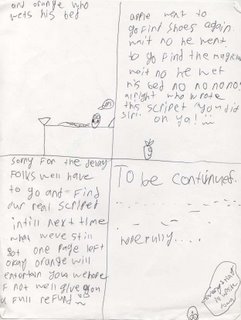 and orange who
wets his bed
apple went to
go find shoes again.
wait no he went
to go find the magical
wait no he wet
his bed no no no no
alright who wrote
this script you did
sir.
oh ya!
sorry for the delay
folks well have
to go and find
our real script
intill next time
what weve still
got one page left
okay orange will
entertain you
if not well give you
a full refund
To be continued..
hopefully....